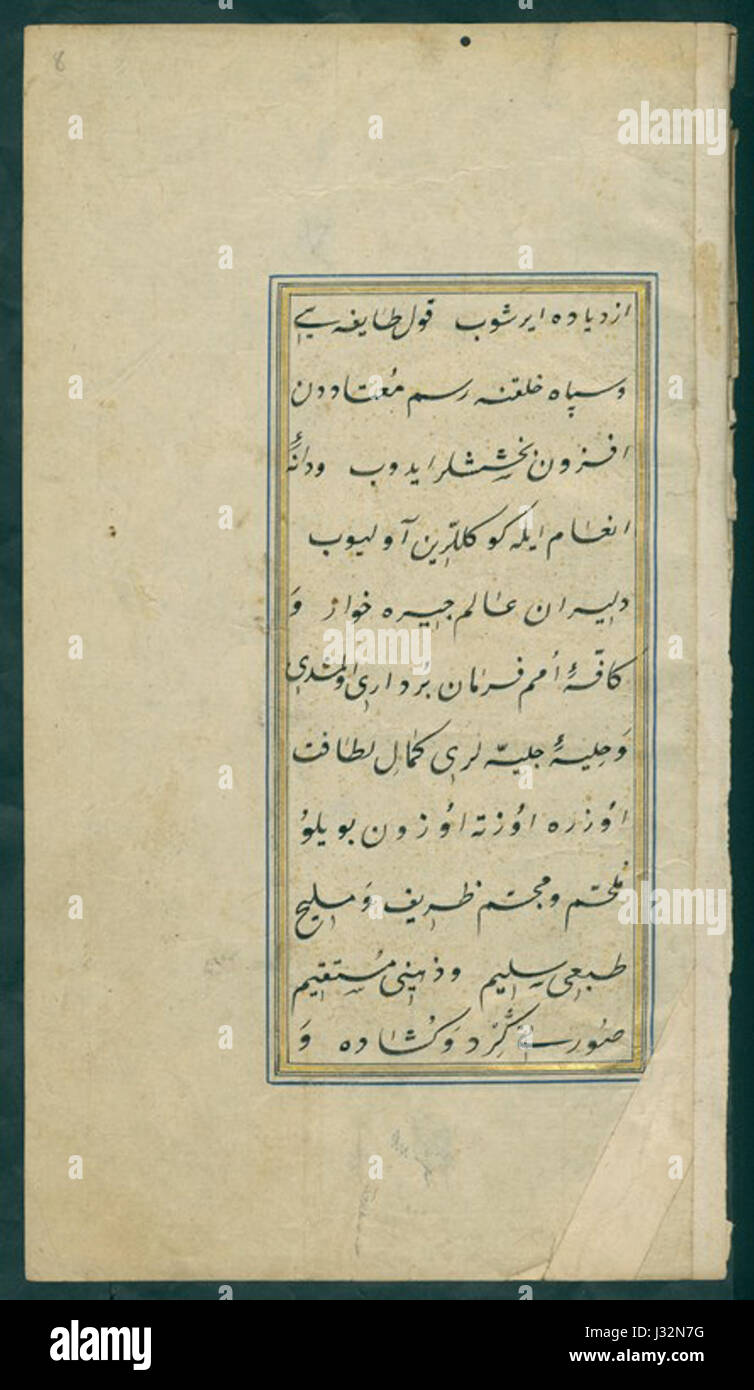 8
ازدیاده ایرشوب قول طایفه سی
و سپاه خلقنه رسم مُعتاددن
افزون بخششلر ایدوب ودانهٔ
انعام ایله کوکللرین آولیوب
دلیران عالم جیره خوار وَ
کافّهٔ اُمم فرمان بُرداری اولمشدی
وَحلیهٔ جلیّه لری کمالِ لطافت
اوُزره اوُرته اوُزون بویلوُ
مُلحّم ومجسّم ظریف وَ ملیح
طبعی سلیم وذهنی مُستقیم
صُورتی گِرد وَکُشاده وَ
alamy
alamy
alamy
alamy
Image ID: J32N7G
www.alamy.com